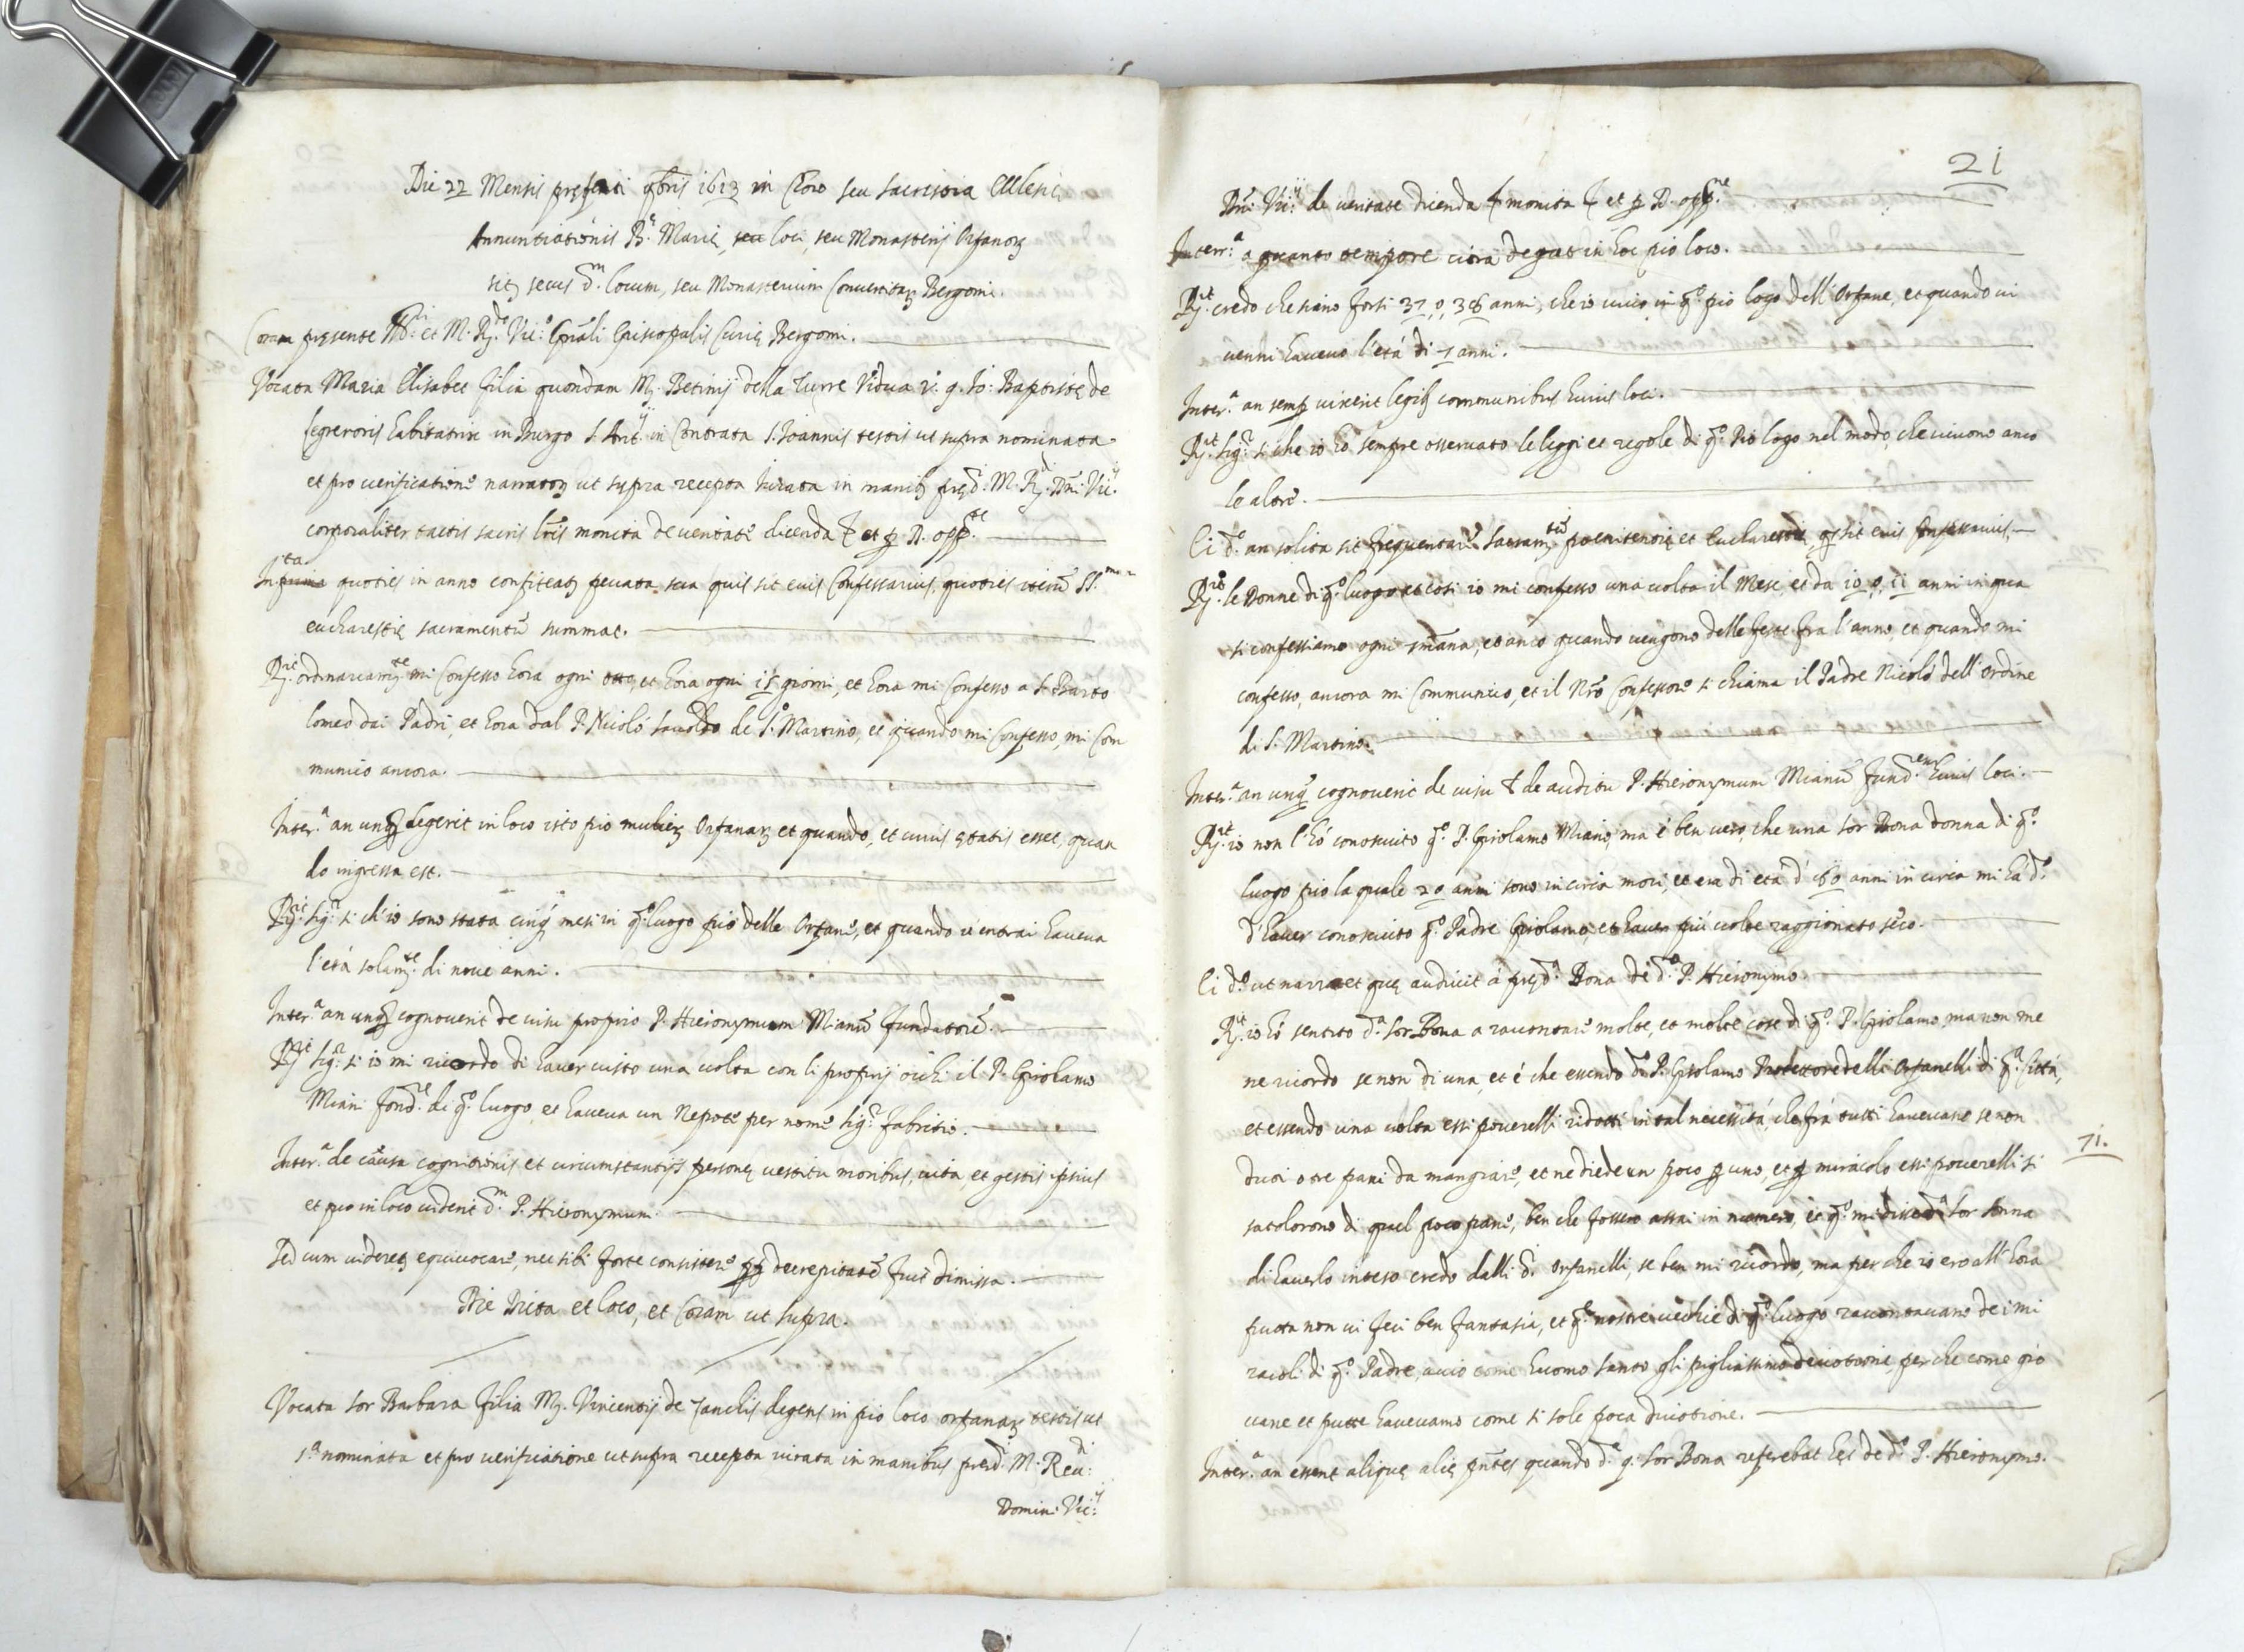 Die 22 Mensis presenti 9bris 1613 in Choro seu sacristia Ecclesie
Annuntiationis B.e Marie, seu loci, seu Monasterij Orfanorum
sitę secus d.m locum, seu Monasterium Convertitarum Bergomi.
Coram presente et M. R.do Vic.o Gnali Episcopalis Curię Bergomi.
Vocata Maria Elisabet filia quondam M. Betinij della Turre Vidua r. q. Io: Baptistę de
habitatrix in Burgo S. Ant.ij in Contrata S. Ioannis testis ut supra nominata
et pro verificatione narratorum ut supra recepta iurata in manib. pręd.i M. R.di Dni Vic.ij
corporaliter tactis sacris lris monita de veritate dicenda et p D. opp.te
Interr.ta quoties in anno confiteatur peccata sua quis sit eius Confessarius, quoties SS.mum
eucharestię sacramentū summat.
R.it ordinariam.te mi Confesso hora ogni otto, et hora ogni 15 giorni, et hora mi Confesso a S. Barto
lomeo dai Padri, et hora dal P. Nicolò de S. Martino, et quando mi Confesso, mi Com
munico ancora.
Inter.a an unq degerit in loco isto pio mulierum Orfanarum et quando, et cuius ętatis esset, quan
do ingressa est.
R.it sig.r si ch'io sono stata cinq mesi in q.o luogo pio delle Orfane, et quando v'entrai haveva
l'età solam.te di nove anni.
Inter.a an unq cognoverit de visu proprio P. Hieronymum Mianū fundatorē.
R.it sig.r si io mi ricordo di haver visto una volta con li proprij occhi il P. Girolamo
Miani fond.re di q.o luogo, et haveva un Nepote per nome sig.r Fabritio.
Inter.a de causa cognitionis et circumstantijs personę vestitu moribus, vita, et gestis ipsius
et quo in loco viderit d.m P. Hieronymum.
Sed cum videretur equivocare, nec sibi forte consistere decrepitatē fuit dimissa.
Die dicta et loco, et Coram ut supra.
Vocata Sor Barbara filia M. Vincentij de Zanchis degens in pio loco orfanarum testis ut
s.a nominata et pro verificatione ut supra recepta iurata in manibus pred.i M. Reu.di
Domini Vic.ij
21
Dni Vic.ij de veritate dicenda monita et p D. opp.te
Interr.a a quanto tempore citra degat in hoc pio loco.
R.it credo che siano forsi 37, o, 38 anni, che io vivo in q.o pio logo dell'Orfane, et quando vi
venni havevo l'età di 7 anni.
Inter.a an semp vixerit legib communibus huius loci.
R.it sig.r si che io hò sempre osservato le leggi et regole di q.o Pio logo nel modo, che vivono anco
le altre.
Ei d.o an solita sit frequentare sacram.ta poenitentię et Eucharestię, quis sit eius confessarius,
R.it le Donne di q.o luogo et così io mi confesso una volta il Mese, et da 10, o, 11 anni in qua
si confessiamo ogni smana, et anco quando vengono delle feste fra l'anno, et quando mi
confesso, ancora mi Communico, et il nro Confessore si chiama il Padre Nicolò dell'ordine
di S. Martino.
Inter.a an unq cognoverit de visu de auditu P. Hieronymum Mianū fund.em huius loci.
R.it io non l'hò conosciuto q.o P. Girolamo Miano, ma è ben vero, che una Sor Bona donna di q.o
luogo pio la quale 20 anni sono in circa morì, et era di età d' 80 anni in circa mi hà d.o
d'haver conosciuto q.o Padre Girolamo, et haver più volte raggionato seco.
Ei d.o ut narret quę audivit à pręd.a Bona de d.o P. Hieronymo.
R.it io hò sentito d.a Sor Bona a raccontare molte, et molte cose di q.o P. Girolamo, ma non me
ne ricordo se non di una, et è che essendo d.o P. Girolamo Protettore delli Orfanelli di q.a Città,
et essendo una volta essi poverelli ridotti in tal necessità, che frà tutti havevano se non
duoi o tre pani da mangiare, et ne diede un poco p uno, et p miracolo essi poverelli si
satolorono di quel poco pane, ben che fossero assai in numero, et q.o mi disse d.a Sor
di haverlo inteso credo dalli d.i orfanelli, se ben mi ricordo, ma per che io ero all'hora
putta non vi feci ben fantasia, et q.e nostre vechie di q.o luogo raccontavano dei mi
racoli di q.o Padre, acciò come huomo santo gli pigliassimo devotione, per che come gio
vane et putte havevamo come si sole poca divotione.
71.
Inter.a an essent alique alię pntes quando d.a q. Sor Bona referebat hęc de d.o P. Hieronymo.